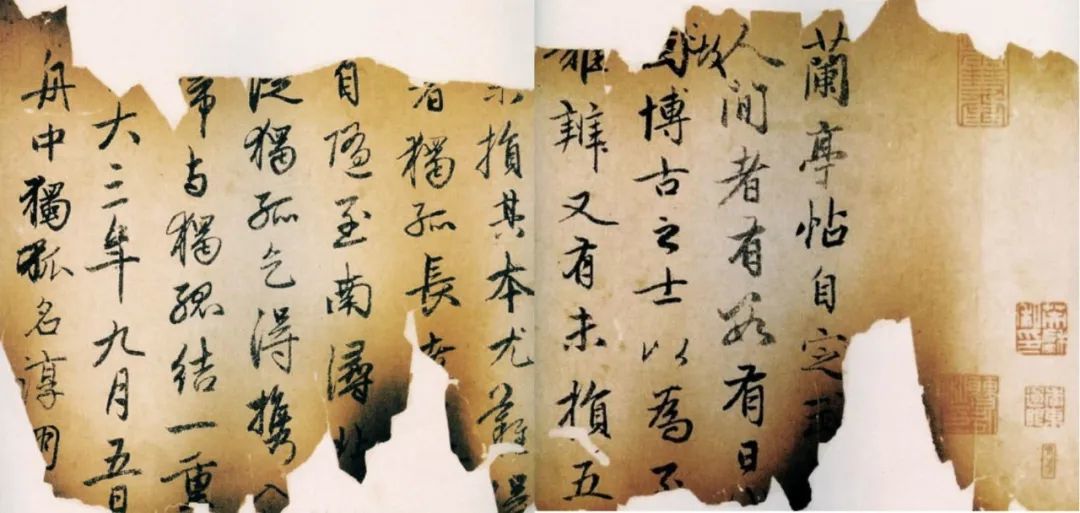 蘭亭帖自定
人間者有數有日
博古之士以為
辨又有未損五
損其本尤難
者獨孤長
自隨至南潯北
從獨孤乞得攜入
帝与獨孤結一重
大三年九月五日
舟中獨孤名淳朋